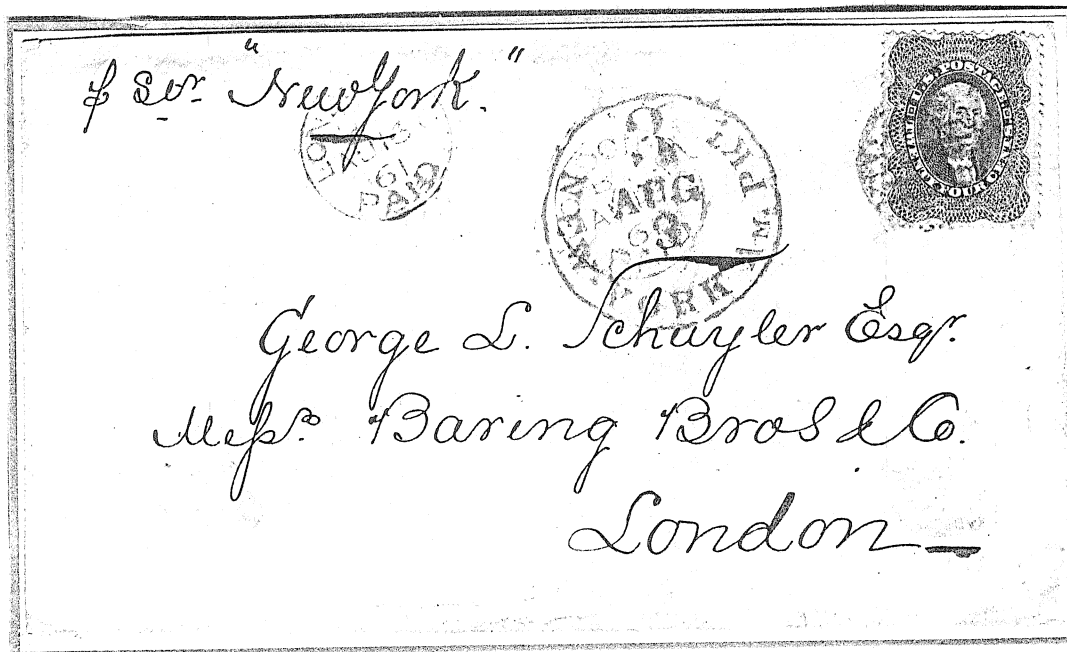 p Str. "New York."
LON
AU 15
61
PAID
3
NEW YORK AM. PKT.
AUG
3
U.S. POSTAGE
TWENTY FOUR CENTS
George L. Schuyler Esqr.
Messrs. Baring Bros & Co.
London